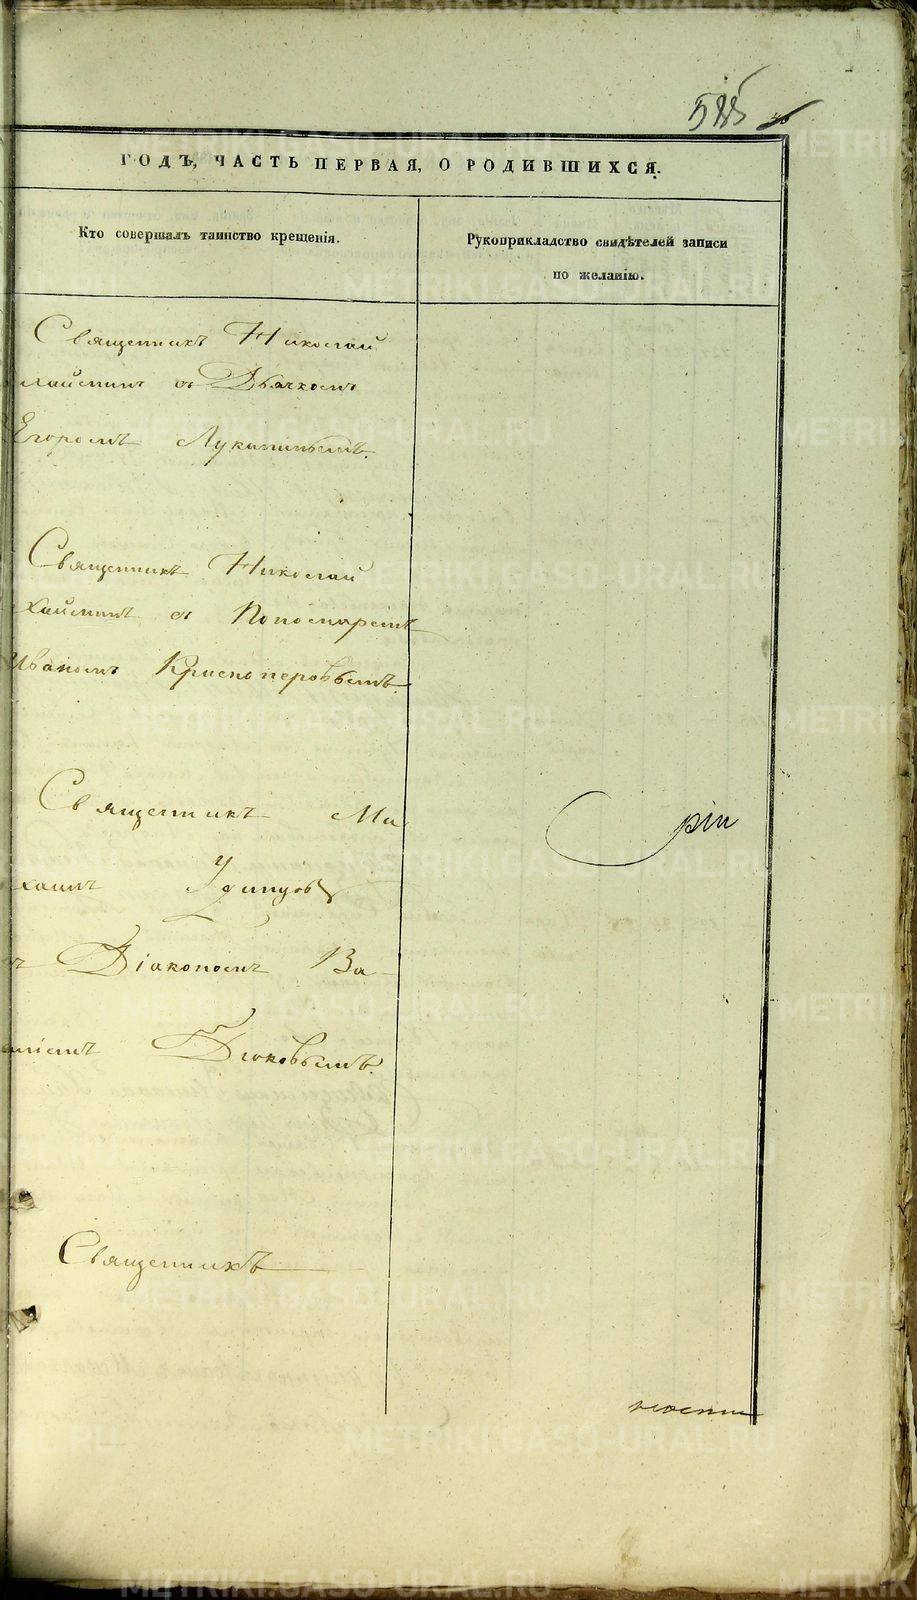 ГОДЪ, ЧАСТЬ ПЕРВАЯ, О РОДИВШИХСЯ.
Кто совершалъ таинство крещенія.
Рукоприкладство свидѣтелей записи
по желанію.
Священникъ Николай
съ Дьячкомъ
Егоромъ Луканинымъ.
Священникъ Николай
съ Пономаремъ
Иваномъ Красноперовымъ
Священникъ Ми
хаилъ Удинцовъ
Діакономъ Ва
Дюковымъ.
Священникъ
METRIKI.GASO-URAL.RU